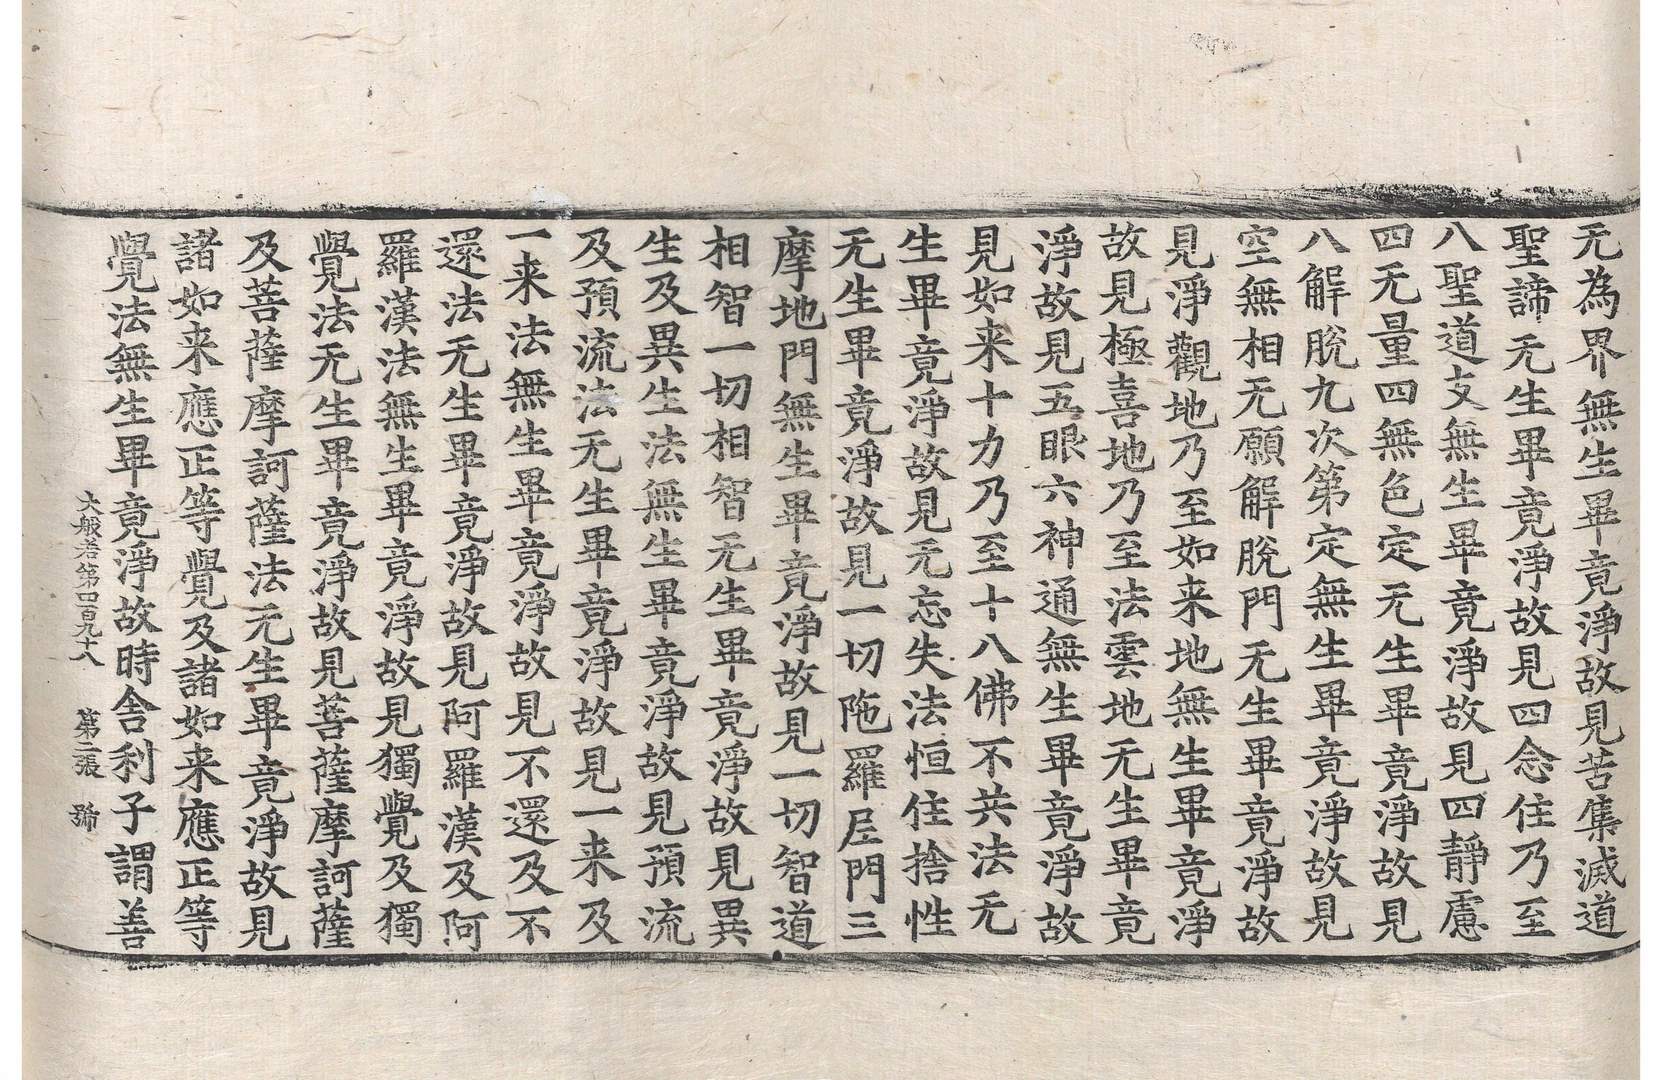 无為界無生畢竟淨故見苦集滅道
聖諦无生畢竟淨故見四念住乃至
八聖道支無生畢竟淨故見四靜慮
四无量四無色定无生畢竟淨故見
八解脫九次第定無生畢竟淨故見
空無相无願解脫門无生畢竟淨故
見淨觀地乃至如来地無生畢竟淨
故見極喜地乃至法雲地无生畢竟
淨故見五眼六神通無生畢竟淨故
見如来十力乃至十八佛不共法无
生畢竟淨故見无忘失法恒住捨性
无生畢竟淨故見一切陁羅尼門三
摩地門無生畢竟淨故見一切智道
相智一切相智无生畢竟淨故見異
生及異生法無生畢竟淨故見預流
及預流法无生畢竟淨故見一来及
一来法無生畢竟淨故見不還及不
還法无生畢竟淨故見阿羅漢及阿
羅漢法無生畢竟淨故見獨覺及獨
覺法无生畢竟淨故見菩薩摩訶薩
及菩薩摩訶薩法无生畢竟淨故見
諸如来應正等覺及諸如来應正等
覺法無生畢竟淨故時舍利子謂善
大般若第四百九十八 第二張 號